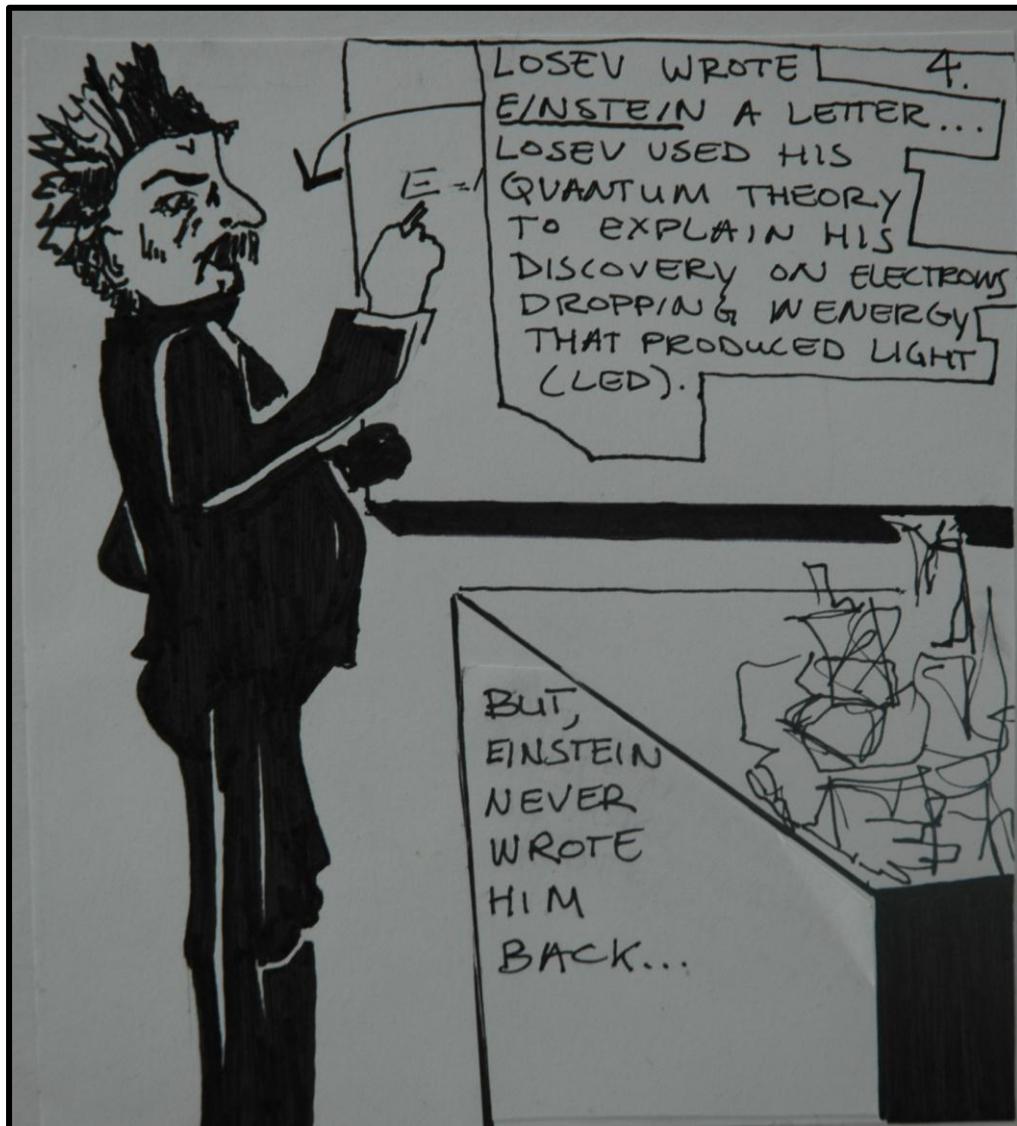 4.
LOSEV WROTE
EINSTEIN A LETTER...
LOSEV USED HIS
QUANTUM THEORY
TO EXPLAIN HIS
DISCOVERY ON ELECTRONS
DROPPING IN ENERGY
THAT PRODUCED LIGHT
(LED).
E=
BUT,
EINSTEIN
NEVER
WROTE
HIM
BACK...